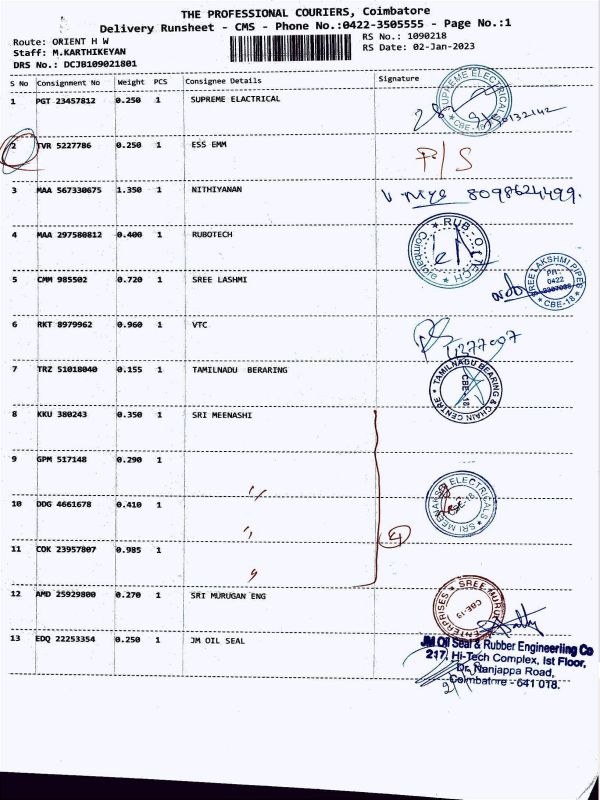 THE PROFESSIONAL COURIERS, Coimbatore
Delivery Runsheet - CMS - Phone No.:0422-3505555 - Page No.:1
Route: ORIENT H W
RS No.: 1090218
Staff: M.KARTHIKEYAN
RS Date: 02-Jan-2023
DRS No.: DCJB109021801
S No Consignment No Weight PCS Consignee Details Signature
1 PGT 23457812 0.250 1 SUPREME ELACTRICAL
SUPREME ELECTRICALS
* CBE-18 *
2 TVR 5227786 0.250 1 ESS EMM
F/S
3 MAA 567330675 1.350 1 NITHIYANAN
8098624499.
4 MAA 297580812 0.400 1 RUBOTECH
RUB-O-TECH
Coimbatore
5 CMM 985502 0.720 1 SREE LASHMI
SREE LAKSHMI PIPES
PH:
0422
* CBE-18 *
6 RKT 8979962 0.960 1 VTC
7 TRZ 51018040 0.155 1 TAMILNADU BERARING
TAMILNADU BEARING
& CHAIN CENTRE
CBE-18
8 KKU 380243 0.350 1 SRI MEENASHI
9 GPM 517148 0.290 1
SRI MEENAKSHI ELECTRICALS
CBE-18
10 DDG 4661678 0.410 1
4
11 COK 23957807 0.985 1
12 AMD 25929800 0.270 1 SRI MURUGAN ENG
SREE MURUGAN
ENTERPRISES
13 EDQ 22253354 0.250 1 JM OIL SEAL
JM Oil Seal & Rubber Engineeriing Co
217, Hi-Tech Complex, Ist Floor,
Dr. Nanjappa Road,
Coimbatore - 641 018.